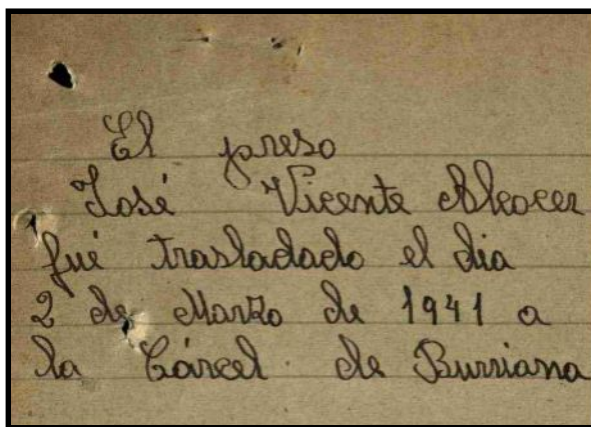 El preso
José Vicente Alcocer
fué trasladado el dia
2 de Marzo de 1941 a
la Cárcel de Burriana